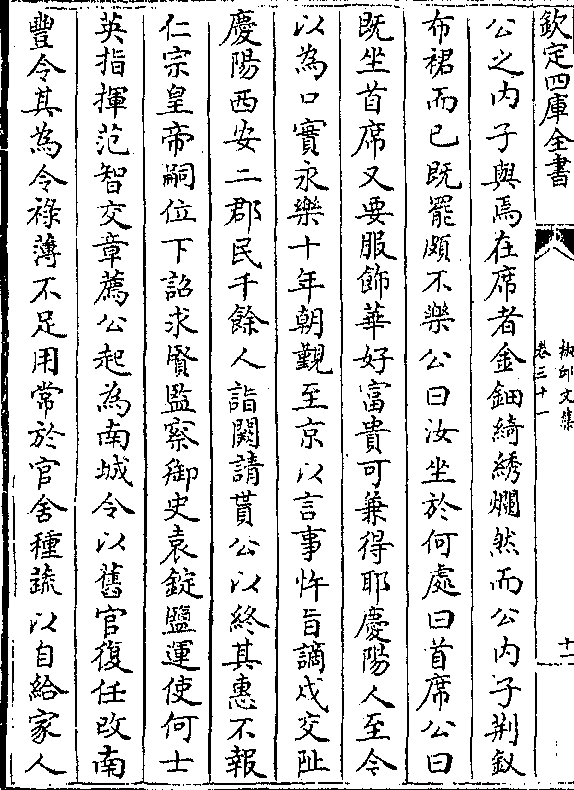 欽定四庫全書
椒邱文集
卷三十一
十一
公之内子與焉在席者金鈿綺綉爛然而公内子荆釵
布裙而已既罷頗不樂公曰汝坐於何處曰首席公曰
既坐首席又要服飾華好富貴可兼得耶慶陽人至今
以為口實永樂十年朝覲至京以言事忤旨謫戍交阯
慶陽西安二郡民千餘人詣闕請貰公以終其惠不報
仁宗皇帝嗣位下詔求賢監察御史袁錠鹽運使何士
英指揮范智交章薦公起為南城令以舊官復任改南
豐令其為令禄薄不足用常於官舍種蔬以自給家人